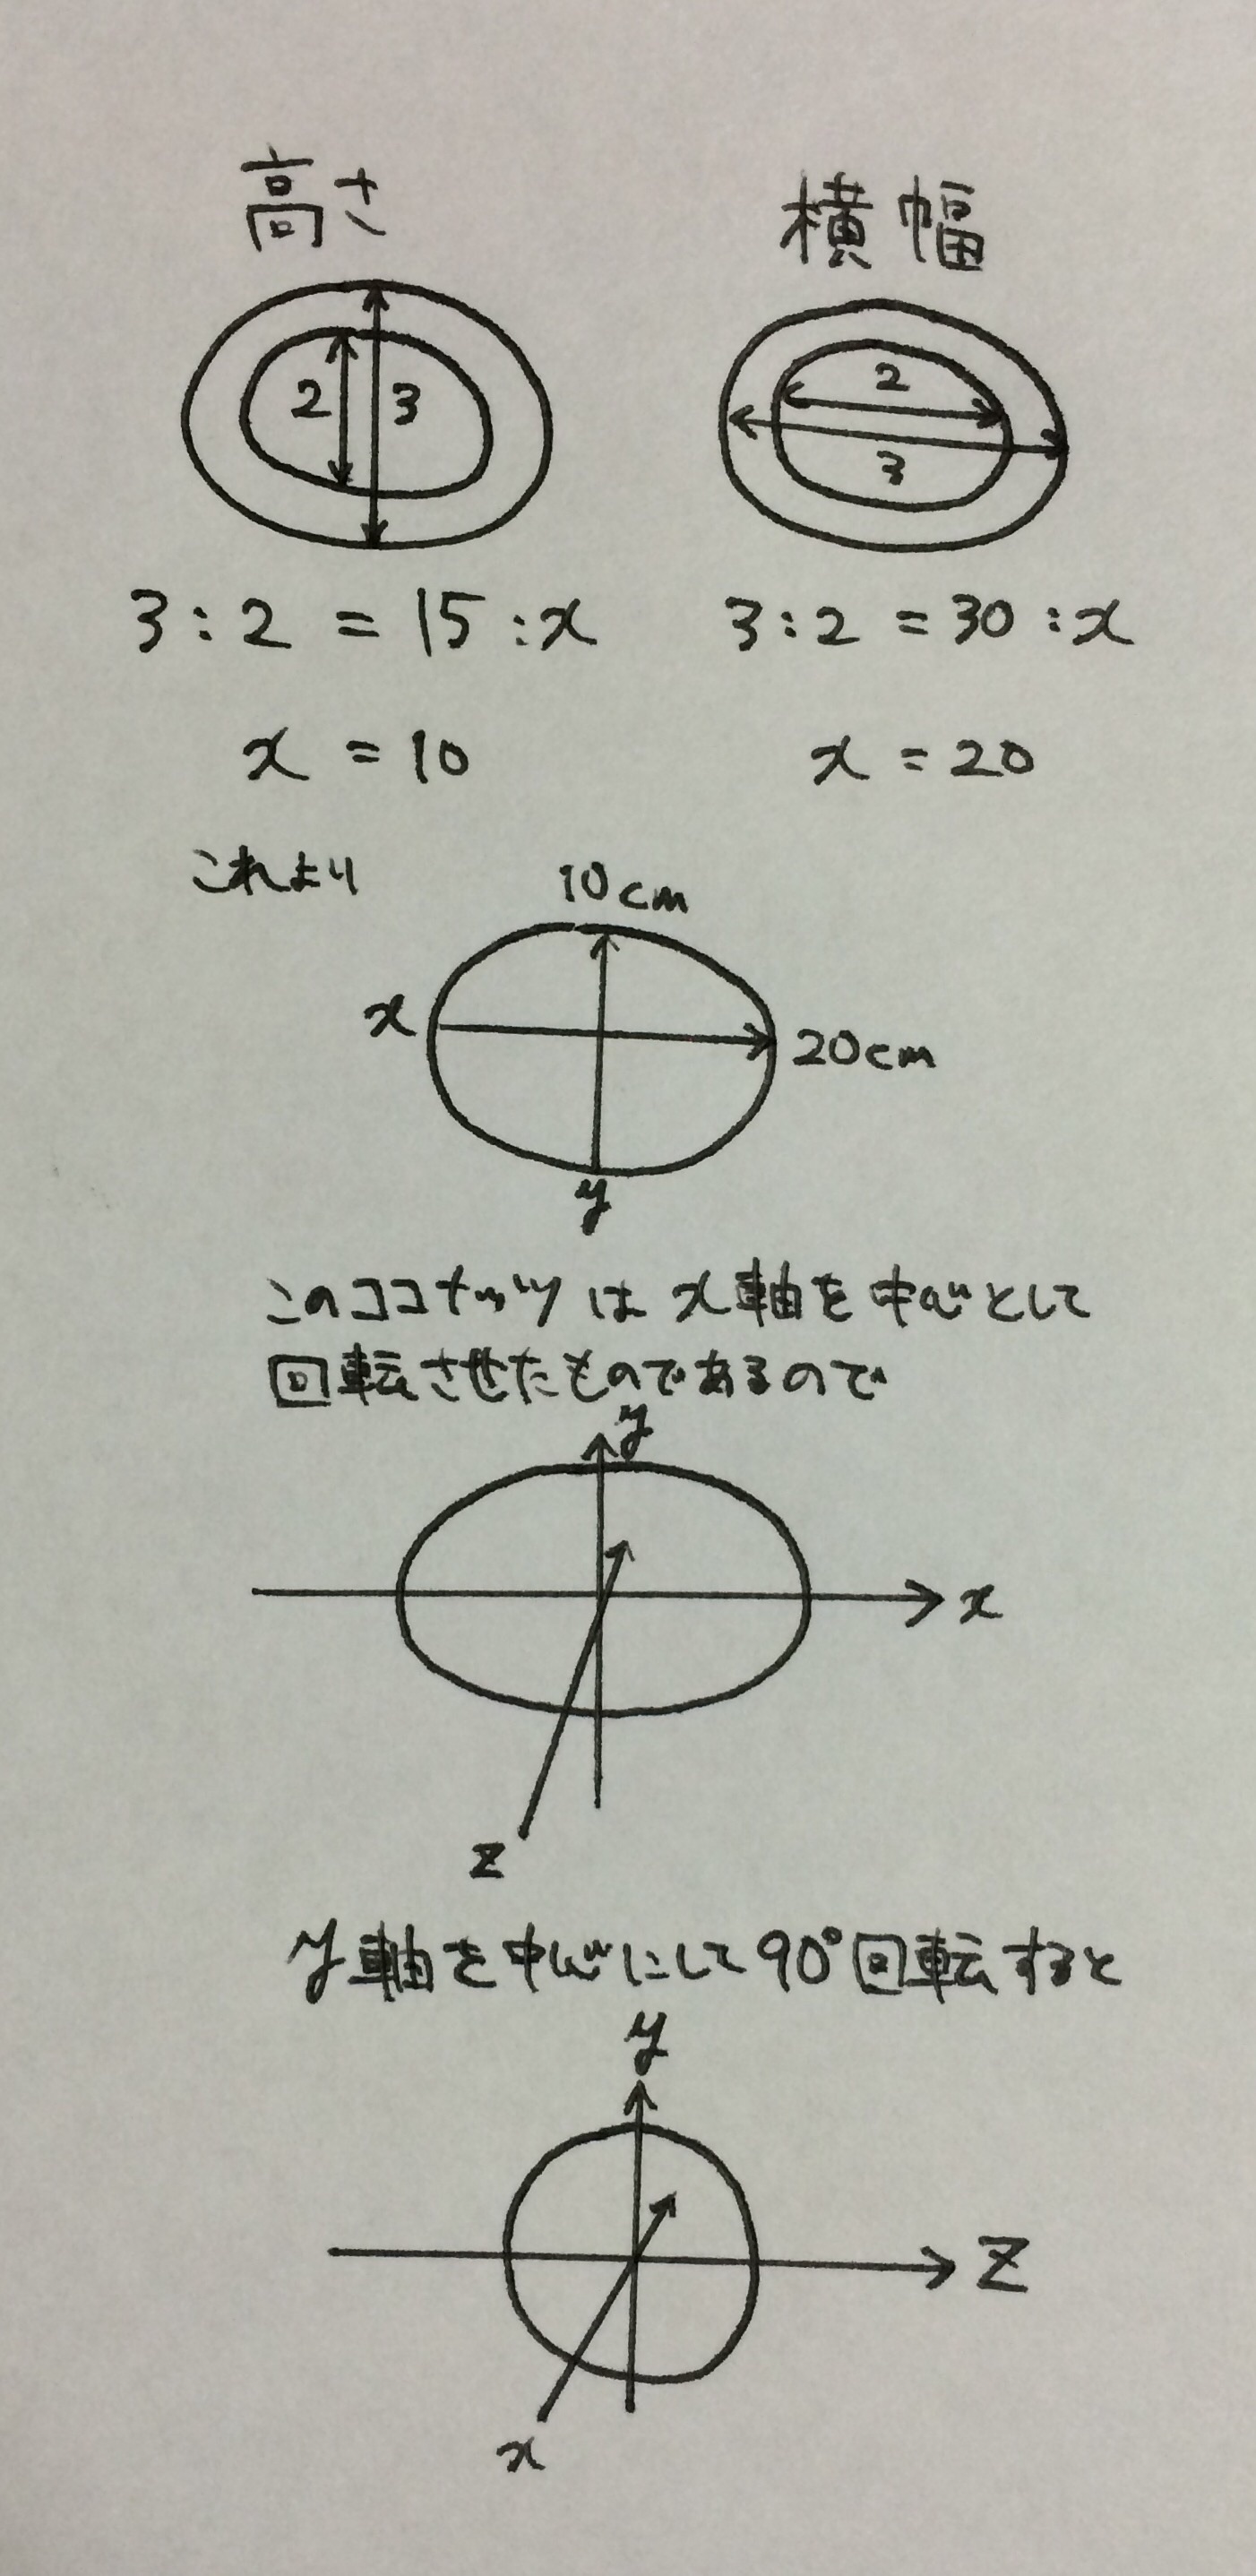 高さ
横幅
2 3
2
3
3:2 = 15:x
3:2 = 30:x
x = 10
x = 20
これより
10cm
x
20cm
y
このココナッツは x軸を中心として
回転させたものであるので
y
x
z
y軸を中心にして90°回転すると
y
z
x